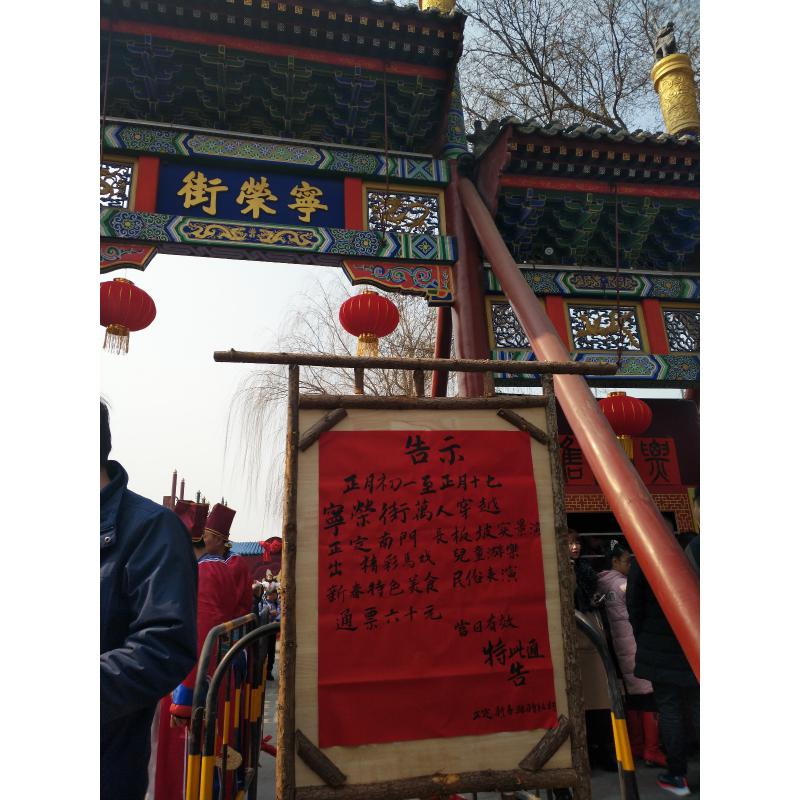 街榮寧
告示
正月初一至正月十七
寧榮街萬人穿越
正定南門 長板坡实景演
出 精彩馬戏 兒童游樂
新春特色美食 民俗表演
通票六十元
當日有效
特此通
告
正定新春